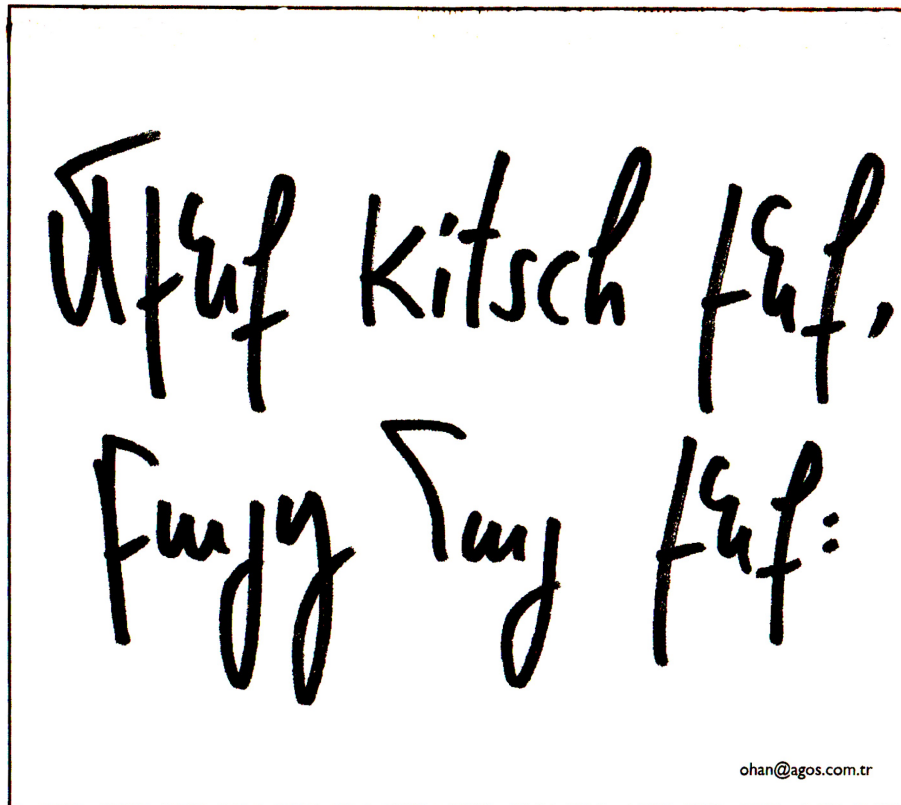 Մենք kitsch ենք,
բայց Հայ ենք:
ohan@agos.com.tr